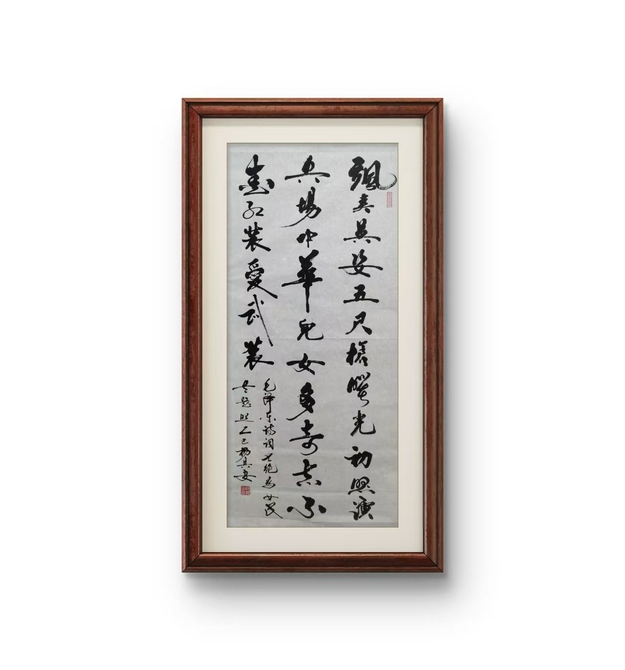 颯爽英姿五尺槍曙光初照演
兵場中華兒女多奇志不
愛紅裝愛武裝
毛澤東詩詞七絕為女民
兵題照乙巳